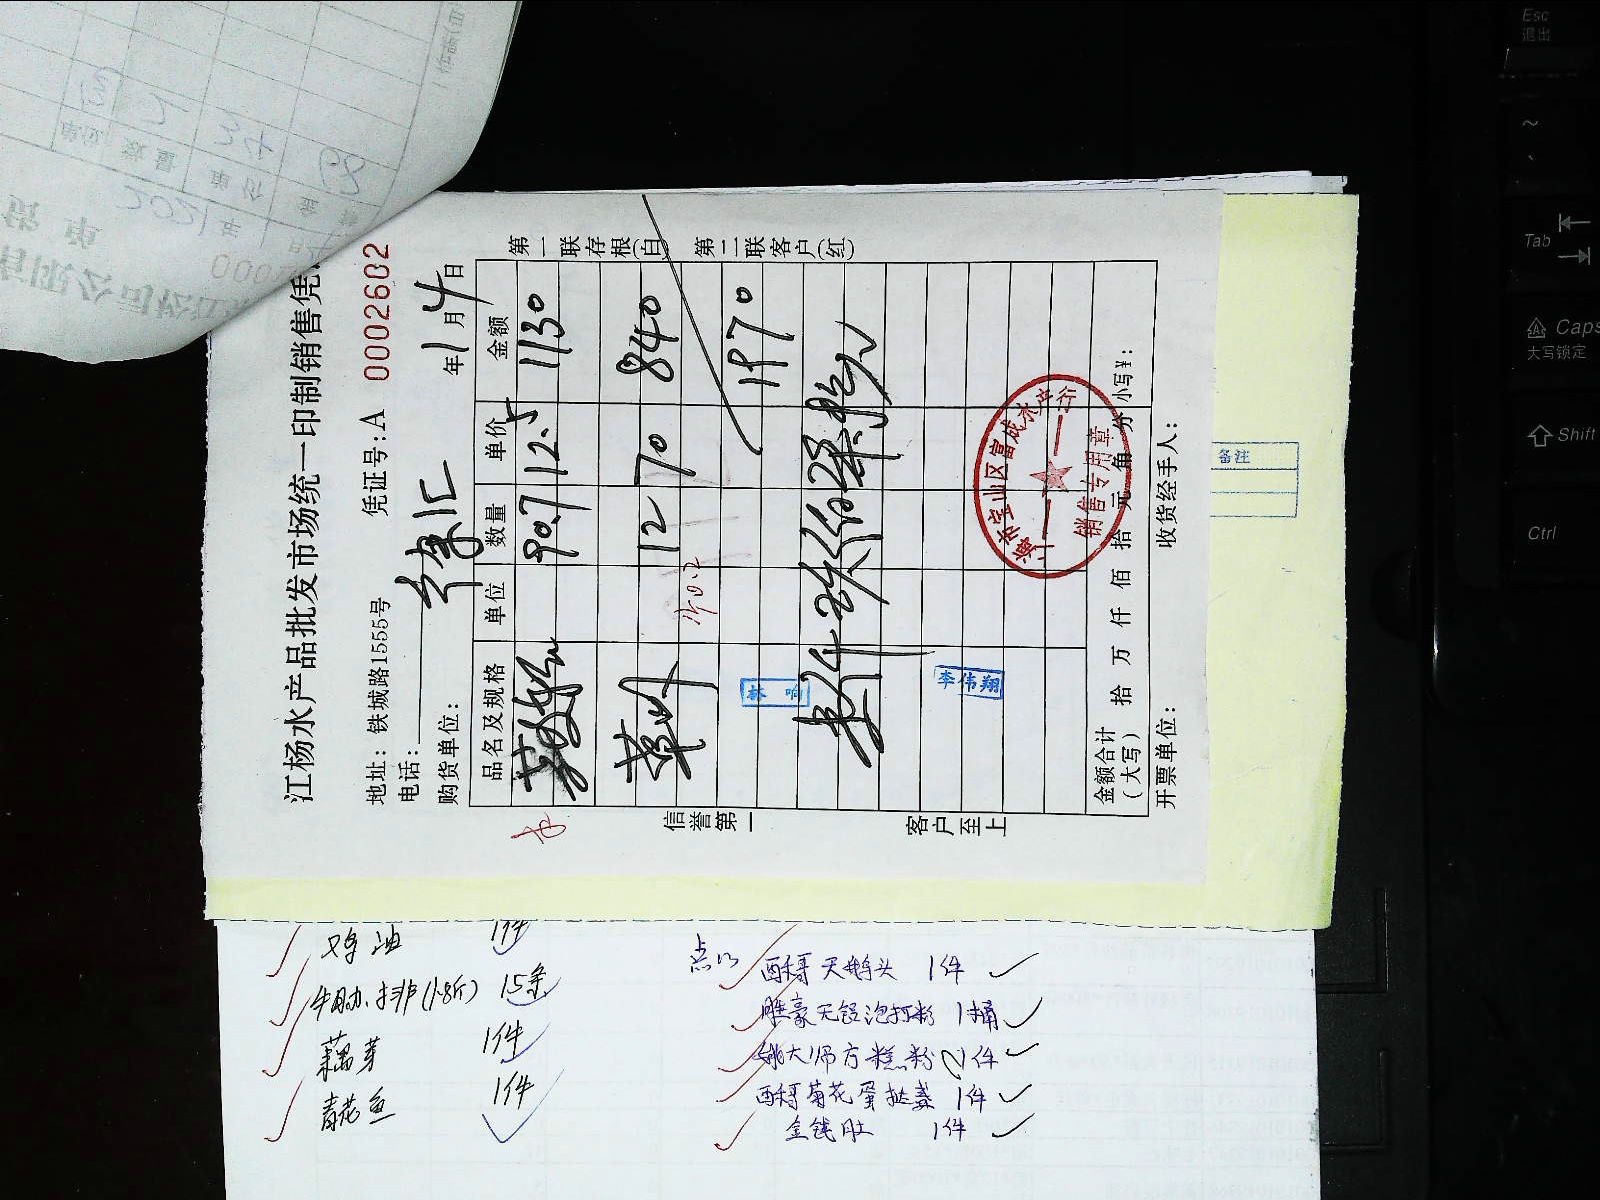 江杨水产品批发市场统一印制销售凭
地址：铁城路1555号 凭证号：A 0002602
电话：
购货单位： 年1月4日
品名及规格 单位 数量 单价 金额
90.7 12.5 1130
12 70 840
1970
金额合计（大写） 拾 万 仟 佰 拾 元 角 分 小写¥：
开票单位： 收货经手人：
第一联存根（白） 第二联客户（红）
信誉第一
客户至上
海市宝山区富成水产行
销售专用章
李伟翔
备注
鸡油 1件
牛肋排(1.8斤) 15条
藕芽 1件
青花鱼 1件
点心
酥哥天鹅头 1件
雕豪无铝泡打粉 1桶
姚大师方糕粉 1件
酥哥菊花蛋挞盏 1件
金钱肚 1件
2021年
单位
数量
单价
金额
Esc
退出
~
Tab
Caps
大写锁定
Shift
Ctrl